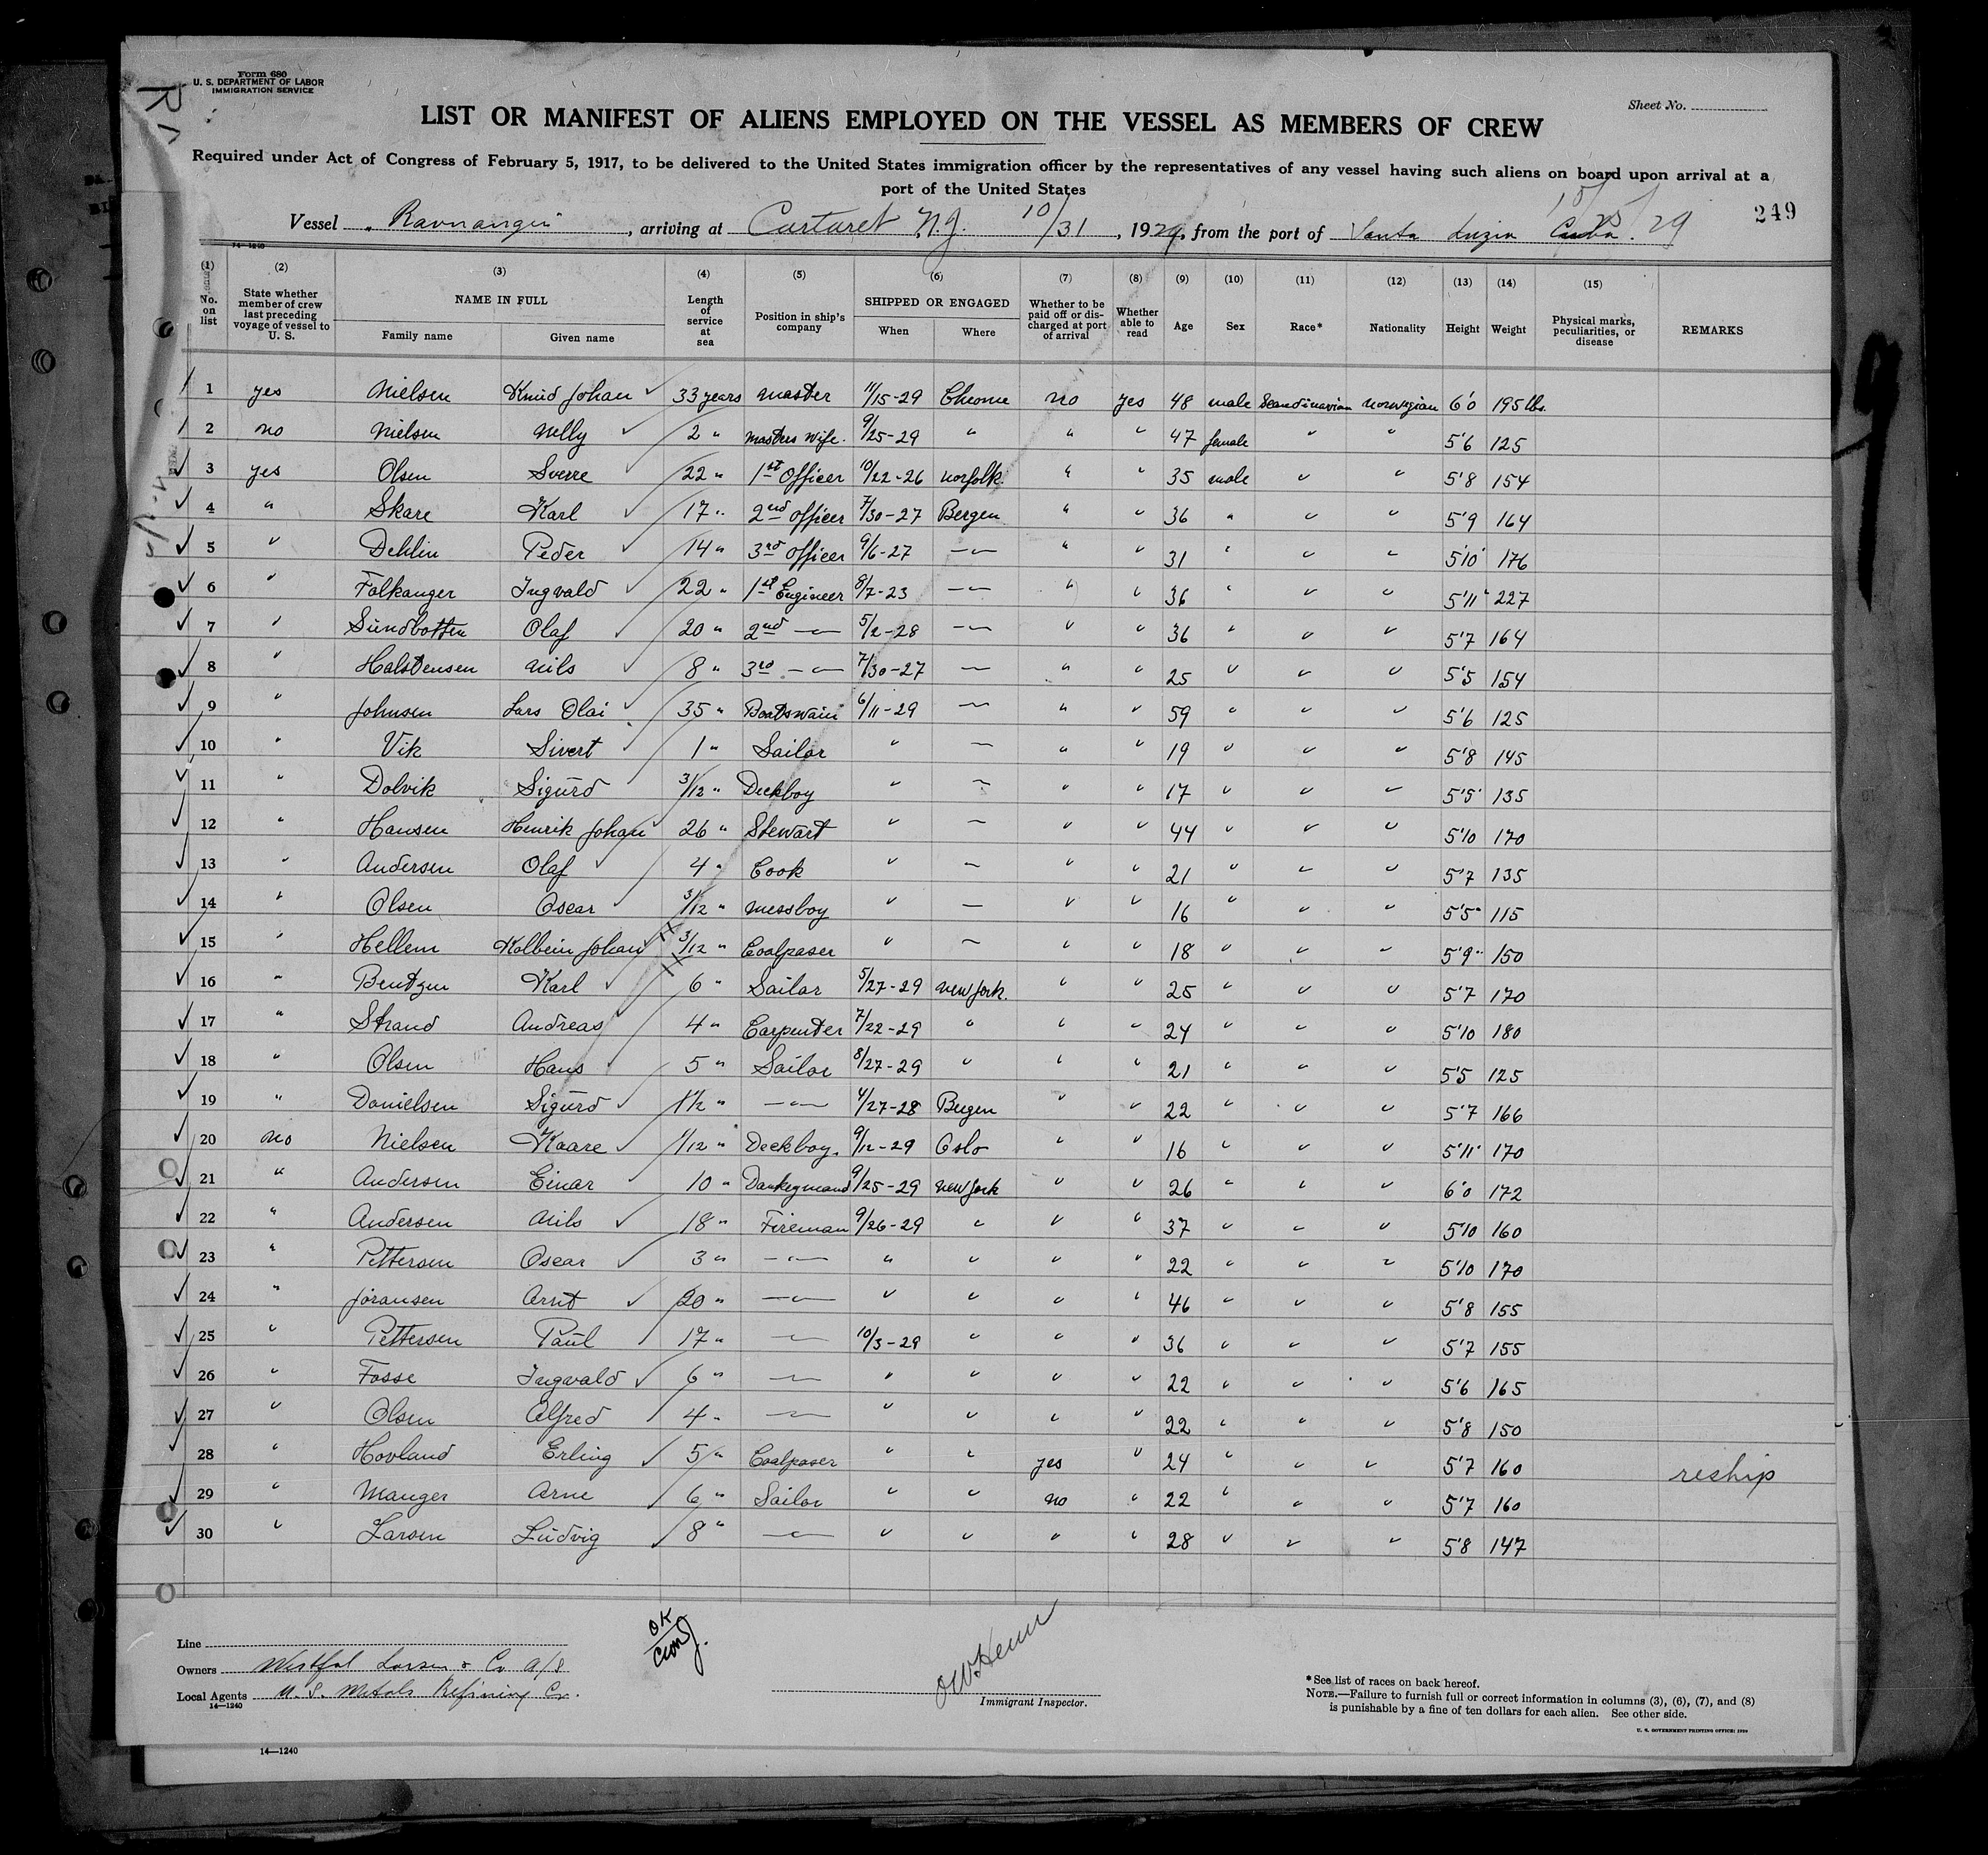 Form 680
U. S. DEPARTMENT OF LABOR
IMMIGRATION SERVICE
Sheet No.
LIST OR MANIFEST OF ALIENS EMPLOYED ON THE VESSEL AS MEMBERS OF CREW
Required under Act of Congress of February 5, 1917, to be delivered to the United States immigration officer by the representatives of any vessel having such aliens on board upon arrival at a
port of the United States
249
Vessel "Ravnanger", arriving at Cartaret N.J. 10/31, 1929, from the port of Santa Luzia Cuba. 10/25/29
14-1240
(1) (2) (3) (4) (5) (6) (7) (8) (9) (10) (11) (12) (13) (14) (15)
No. on list State whether member of crew last preceding voyage of vessel to U. S. NAME IN FULL Family name Given name Length of service at sea Position in ship's company SHIPPED OR ENGAGED When Where Whether to be paid off or discharged at port of arrival Whether able to read Age Sex Race* Nationality Height Weight Physical marks, peculiarities, or disease REMARKS
1 yes Nielsen Knud Johan 33 years master 11/15-29 no yes 48 male Scandinavian norwegian 6'0 195 lbs.
2 no Nielsen Nelly 2 " masters wife. 9/25-29 " " " 47 female " " 5'6 125
3 yes Olsen Sverre 22 " 1st Officer 10/22-26 norfolk. " " 35 male " " 5'8 154
4 " Skare Karl 17 " 2nd officer 7/30-27 Bergen " " 36 " " " 5'9 164
5 " Dehlin Peder 14 " 3rd officer 9/6-27 —"— " " 31 " " " 5'10" 176
6 " Falkanger Ingvald 22 " 1st Engineer 8/7-23 —"— " " 36 " " " 5'11" 227
7 " Sundbotten Olaf 20 " 2nd —"— 5/2-28 —"— " " 36 " " " 5'7 164
8 " Halstensen Nils 8 " 3rd —"— 7/30-27 — " " 25 " " " 5'5 154
9 " Johnsen Lars Olai 35 " Boatswain 6/11-29 — " " 59 " " " 5'6 125
10 " Vik Sivert 1 " Sailor " — " " 19 " " " 5'8 145
11 " Dolvik Sigurd 3/12 " Deckboy " — " " 17 " " " 5'5" 135
12 " Hansen Henrik Johan 26 " Stewart " — " " 44 " " " 5'10 170
13 " Andersen Olaf 4 " Cook " — " " 21 " " " 5'7 135
14 " Olsen Oscar 3/12 " messboy " — " " 16 " " " 5'5" 115
15 " Hellem Kolbein Johan 3/12 " Coalpaser " — " " 18 " " " 5'9" 150
16 " Bentzen Karl 6 " Sailor 5/27-29 new york. " " 25 " " " 5'7 170
17 " Strand Andreas 4 " Carpenter 7/22-29 " " " 24 " " " 5'10 180
18 " Olsen Hans 5 " Sailor 8/27-29 " " " 21 " " " 5'5 125
19 " Danielsen Sigurd 1½ " —"— 4/27-28 Bergen " " 22 " " " 5'7 166
20 no Nielsen Kaare 1/12 " Deckboy. 9/12-29 Oslo " " 16 " " " 5'11" 170
21 " Andersen Einar 10 " Donkeymand 9/25-29 new york " " 26 " " " 6'0 172
22 " Andersen Nils 18 " Fireman 9/26-29 " " " 37 " " " 5'10 160
23 " Pettersen Oscar 3 " —"— " " " " 22 " " " 5'10 170
24 " Joransen Arnt 20 " —"— " " " " 46 " " " 5'8 155
25 " Pettersen Paul 17 " —"— 10/3-29 " " " 36 " " " 5'7 155
26 " Fosse Ingvald 6 " —"— " " " " 22 " " " 5'6 165
27 " Olsen Alfred 4 " —"— " " " " 22 " " " 5'8 150
28 " Hovland Erling 5 " Coalpaser " " yes " 24 " " " 5'7 160 reship
29 " Manger Arne 6 " Sailor " " no " 22 " " " 5'7 160
30 " Larsen Ludvig 8 " —"— " " " " 28 " " " 5'8 147
OK
Line
Owners Westfal Larsen & Co A/S
Local Agents U. S. Metals Refining Co.
14—1240
Immigrant Inspector.
*See list of races on back hereof.
NOTE.—Failure to furnish full or correct information in columns (3), (6), (7), and (8)
is punishable by a fine of ten dollars for each alien. See other side.
U. S. GOVERNMENT PRINTING OFFICE:
14—1240